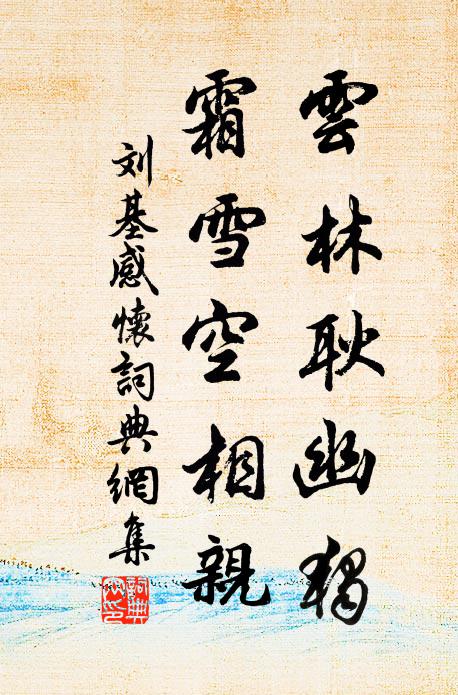 雲林耿幽獨
霜雪空相親
刘基感懷詞典網集